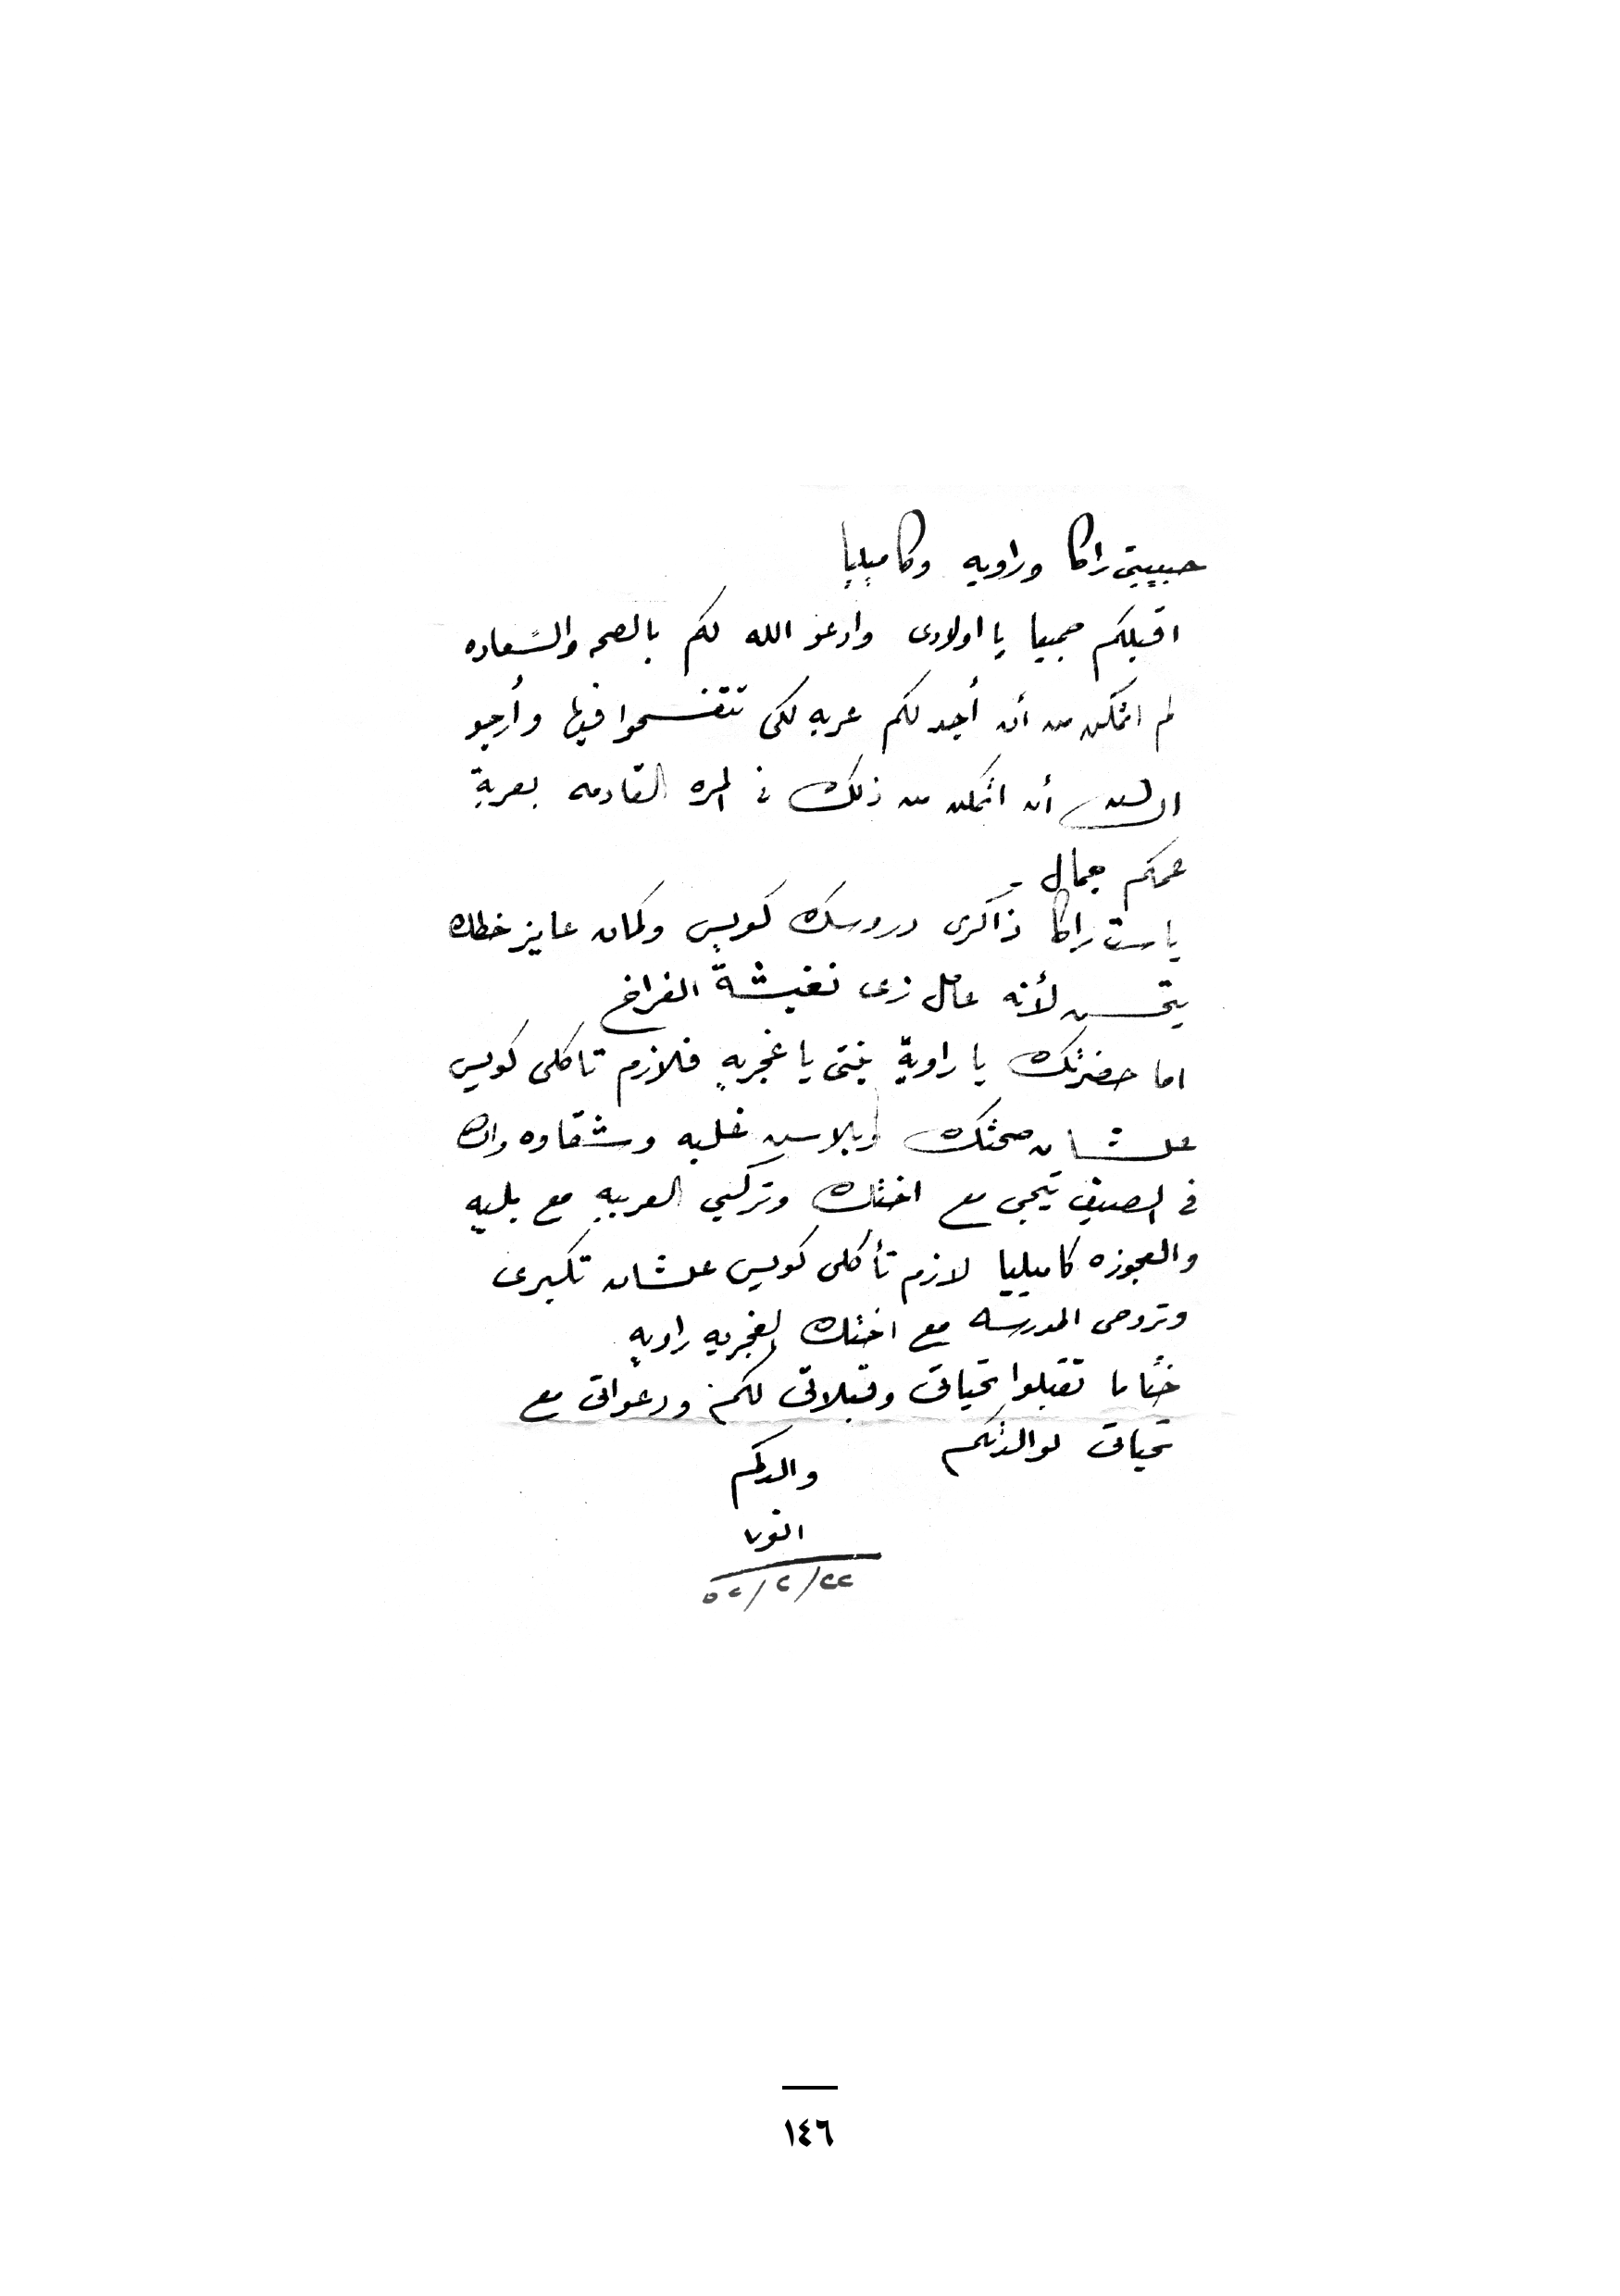 حبيبتى راكا وراويه وكاميليا
اقبلكم جميعا يا اولادى وادعو الله لكم بالصحه والسعاده
لم اتمكن من أن أجد لكم عربه لكى تتفسحوا فيها وأرجو
الله أن اتمكن من ذلك فى المره القادمه بعربة
عمكم جمال -
يا ست راكا ذاكرى دروسك كويس وكمان عايز خطك
يتحسن لأنه عامل زى نغبشة الفراخ
اما حضرتك يا راوية بنتى يا غجريه فلازم تاكلى كويس
علشان صحتك وبلاس غلبه وشقاوه وان
فى الصيف تيجى مع اختك وتركبي العربيه مع بليه
والعجوزه كاميليا لازم تأكلى كويس علشان تكبرى
وتروحى المدرسه مع اختك الغجريه راويه
ختاما تقبلوا تحياتى وقبلاتى لكم ودعواتى مع
تحياتى لوالدتكم
والدكم
انور
٢٢/٢/٥٢
١٤٦